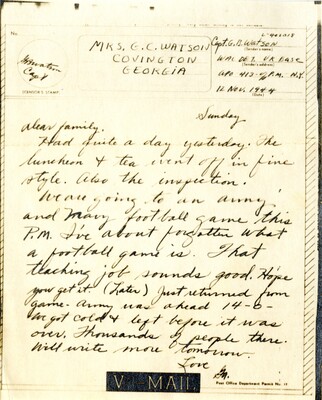 No.
MRS. G. C. WATSON
COVINGTON
GEORGIA
Capt. G. B. Watson
(Sender's name)
WAC DET. UK BASE
(Sender's address)
APO 413 - P.M. N.Y.
12 NOV. 1944
(Date)
(CENSOR'S STAMP)
Sunday
Dear family,
Had quite a day yesterday. The
luncheon & tea went off in fine
style. Also the inspection.
We are going to an army
and navy football game this
P.M. I've about forgotten what
a football game is. That
teaching job sounds good. Hope
you get it. (Later) Just returned from
game. Army was ahead 14-0-
got cold & left before it was
over. Thousands of people there.
Will write more tomorrow.
Love
V···— MAIL
Post Office Department Permit No. 17